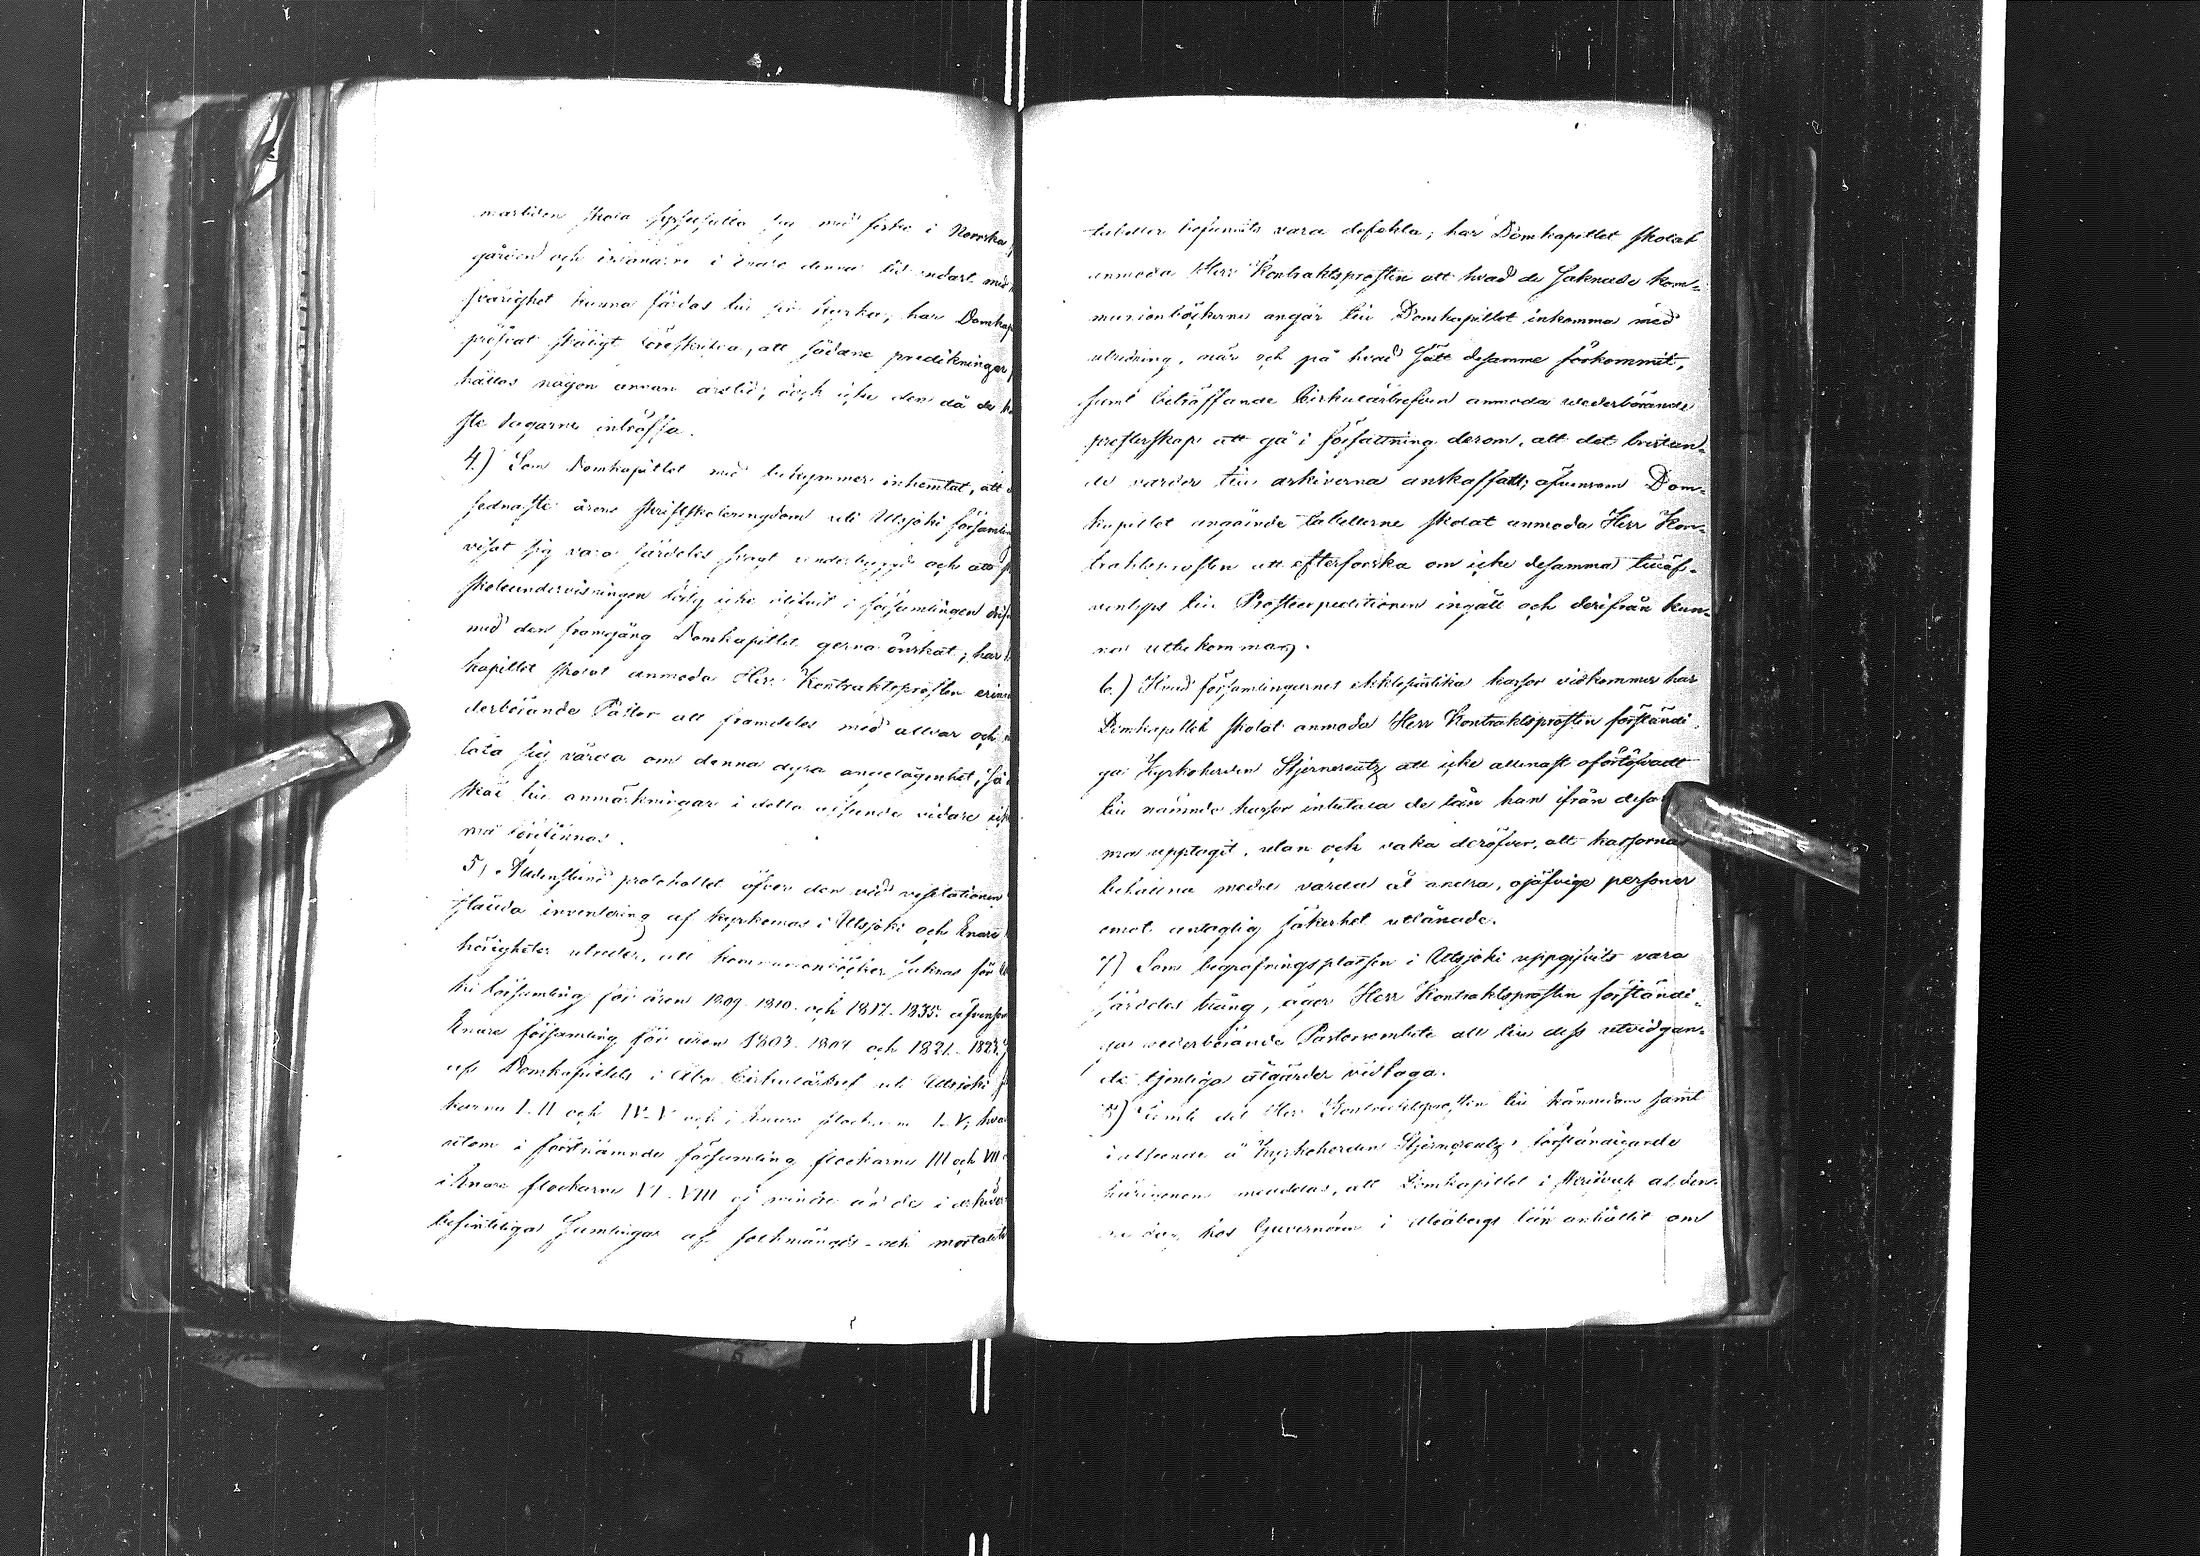 martiden skola sysselsätta sig med fiske i Norrska
gården och invånarne i Enare denna tid endast med
svårighet kunna färdas till sin kyrka, har Domkap
pröfvat skäligt föreskrifva, att sådane predikningar
hållas någon annan årstid, och icke den då de
ste dagarne inträffa.
4.) Som Domkapitlet med bekymmer inhemtat, att
sednaste årens skriftskoleungdom uti Utsjoki församlin
visat sig vara särdeles svagt underbyggd och att
skoleundervisningen ej icke blifvit i församlingen
med den framgång Domkapitlet gerna önskat; har
kapitlet skolat anmoda Herr Kontraktsprosten erin
derbörande Pastor att framdeles med allvar och
låta sig vårda om denna dyra angelägenhet, så
skäl till anmärkningar i detta afseende vidare
må förefinnas.
5) Alldenstund protokollet öfver den vid visitationen
stälda inventering af kyrkornas i Utsjoki och Enare
hörigheter utreder, att kommunionböcker saknas för
ki församling för åren 1809-1810. och 1817-1835. äfvensom
Enare församling för åren 1803-1804 och 1821-1823,
af Domkapitlets i Åbo Cirkulärbref uti Utsjoki
karna I-II och IV-V och i Enare flockarna I-V, hvar
utom i förstnämnde församling flockarne III och VII
i Enare flockarne VI-VIII ej mindre än de i arkiver
befintliga samlingar af folkmängds- och mortalitets
tabeller befunnits vara defekta; har Domkapitlet skolat
anmoda Herr Kontraktsprosten att hvad de saknade kom-
munionböckerne angår till Domkapitlet inkomma med
utredning, när och på hvad sätt desamme förkommit,
samt beträffande Cirkulärbrefven anmoda vederbörande
presterskap att gå i författning derom, att det bristan-
de varder till arkiverna anskaffadt; äfvensom Dom-
kapitlet angående tabellerne skolat anmoda Herr Kon-
traktsprosten att efterforska om icke desamma tilläf-
ventyrs till Prosteexpeditionen ingått och derifrån kun-
na utbekommas.
6.) Hvad församlingarnes ecklesiastika kassor vidkommer har
Domkapitlet skolat anmoda Herr Kontraktsprosten förständi-
ga Kyrkoherden Stjerncreutz att icke allenast oförtöfvadt
till nämnde kassor inbetala de lån han ifrån desa
ma upptagit, utan och vaka deröfver, att kassorna
behållna medel varda åt andra, ojäfvige personer
emot antaglig säkerhet utlånade.
7) Som begrafningsplatsen i Utsjoki uppgifvits vara
särdeles trång, äger Herr Kontraktsprosten förständi-
ga vederbörande Pastorsembete att till dess utvidgan-
de tjenliga åtgärder vidtaga.
8) Semte det Herr Kontraktsprosten till kännedom samt
i afseende å Kyrkoherden Stjerncreutz's förständigande
härigenom meddelas, att Domkapitlet i skrifvelse af den-
na dag hos Guvernören i Uleåborgs län anhållit om